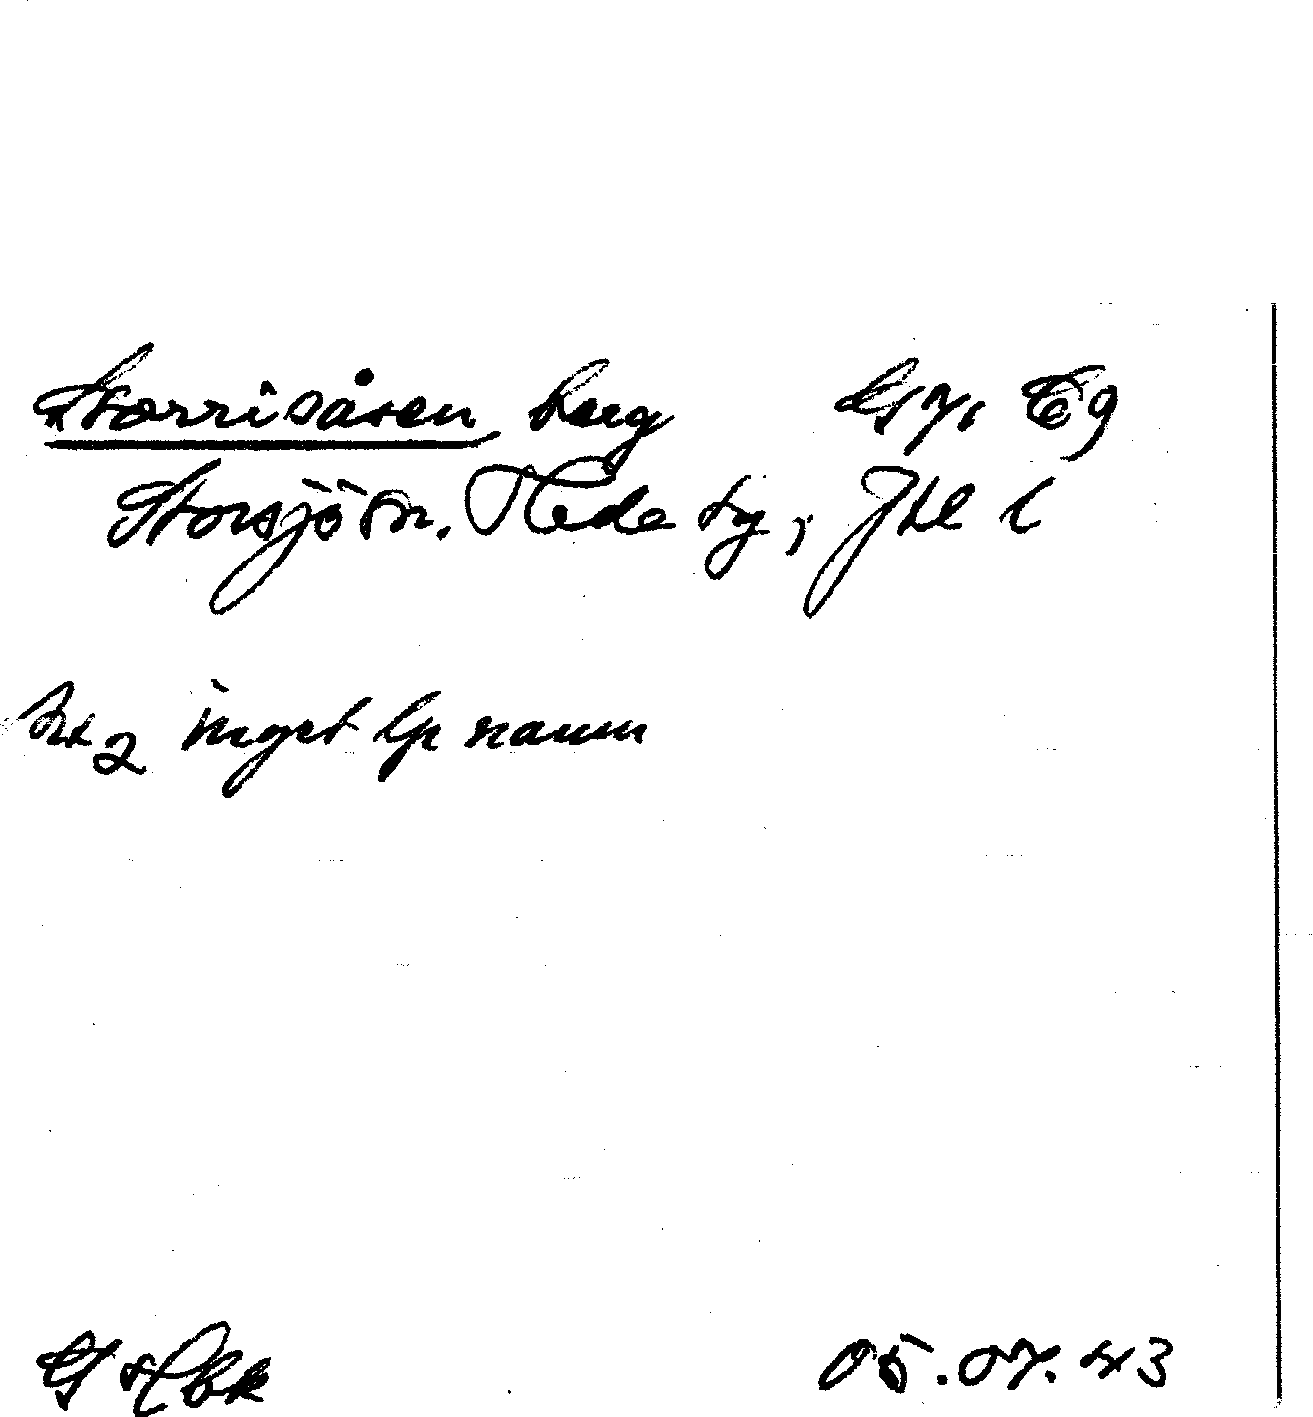 Storrisåsen, berg G 7. E9
Storsjö sn. Hede tg, Jtl l
Bt 2 inget lp namn
G Hbk 05.07.43